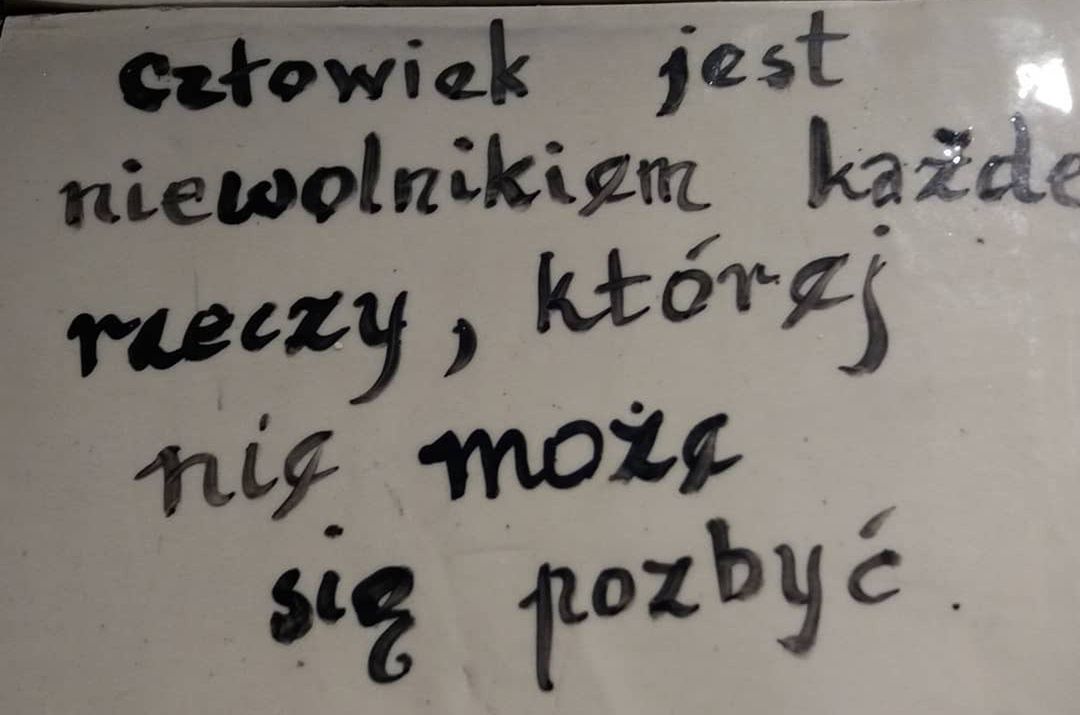 człowiek jest
niewolnikiem każde
rzeczy, której
nie może
się pozbyć.